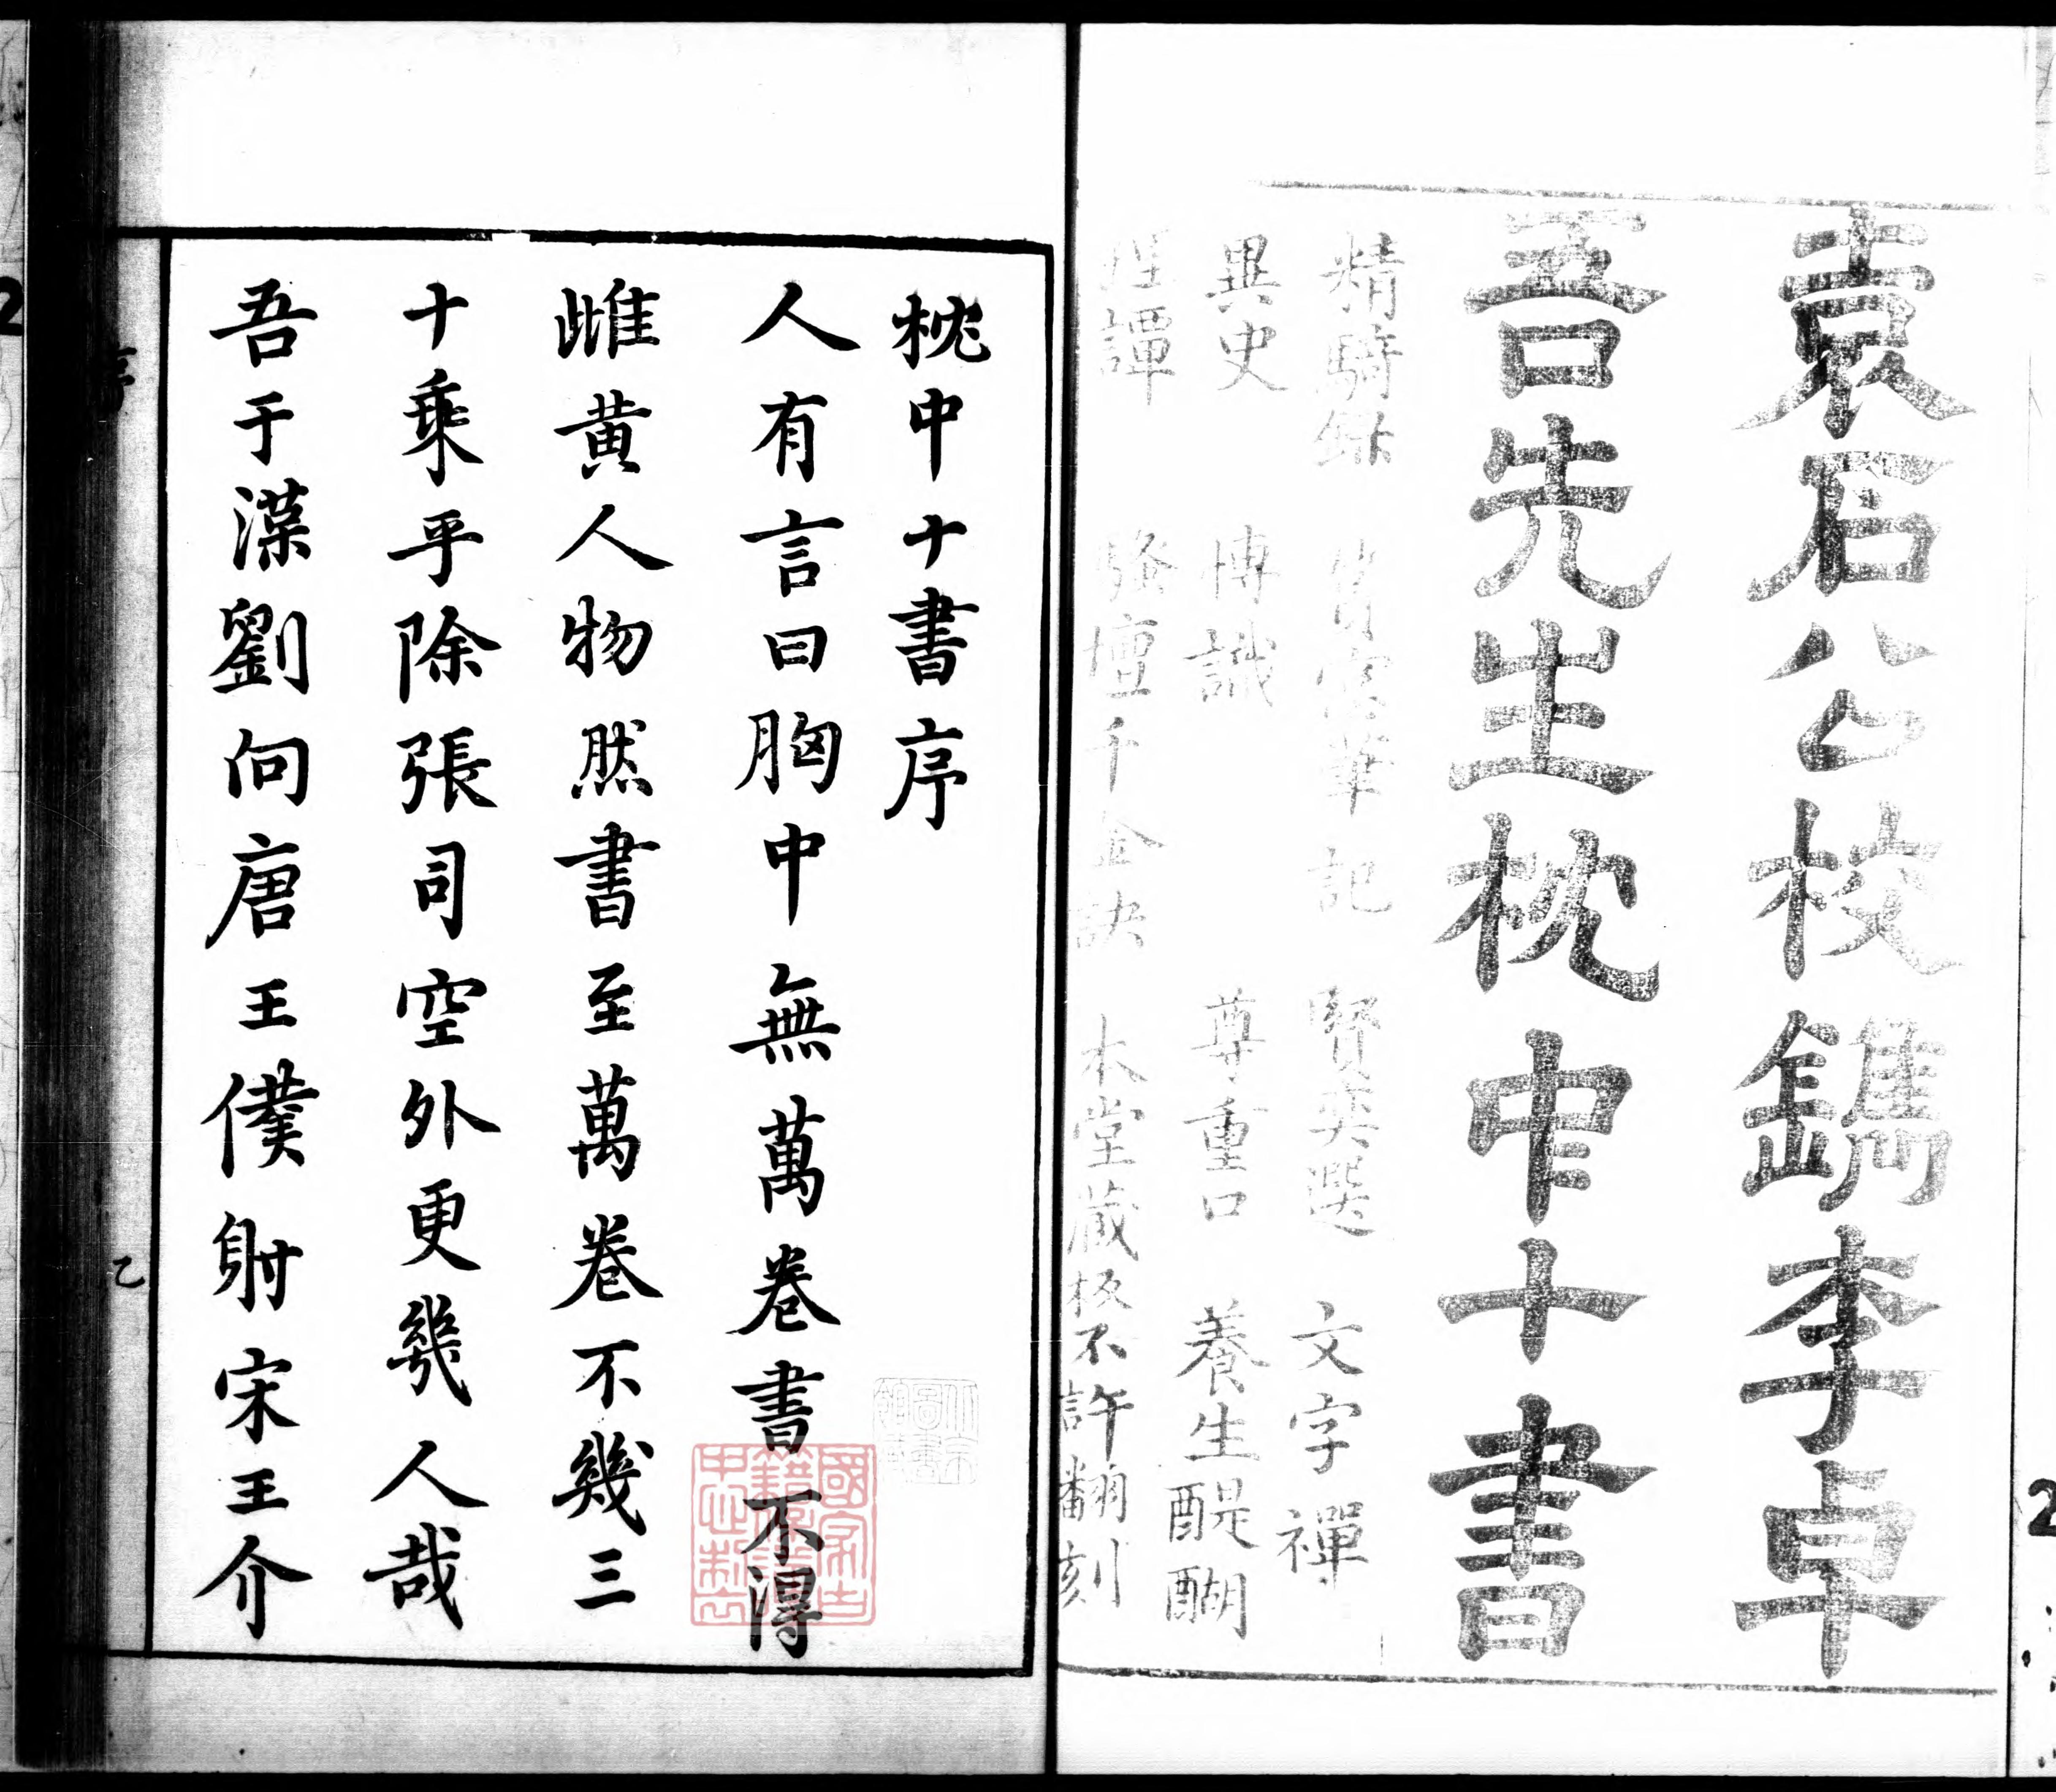 袁石公校鐫李卓
吾先生枕中十書
精騎錄 賞窓筆記 賢奕選 文字禪
異史 博識 尊重口 養生醍醐
理譚 騷壇千金訣 本堂藏板不許翻刻
枕中十書序
人有言曰胸中無萬卷書不得
雌黄人物然書至萬卷不幾三
十乘乎除張司空外更幾人哉
吾于漢劉向唐王僕射宋王介
序
乙
國家古
籍保護
中心制